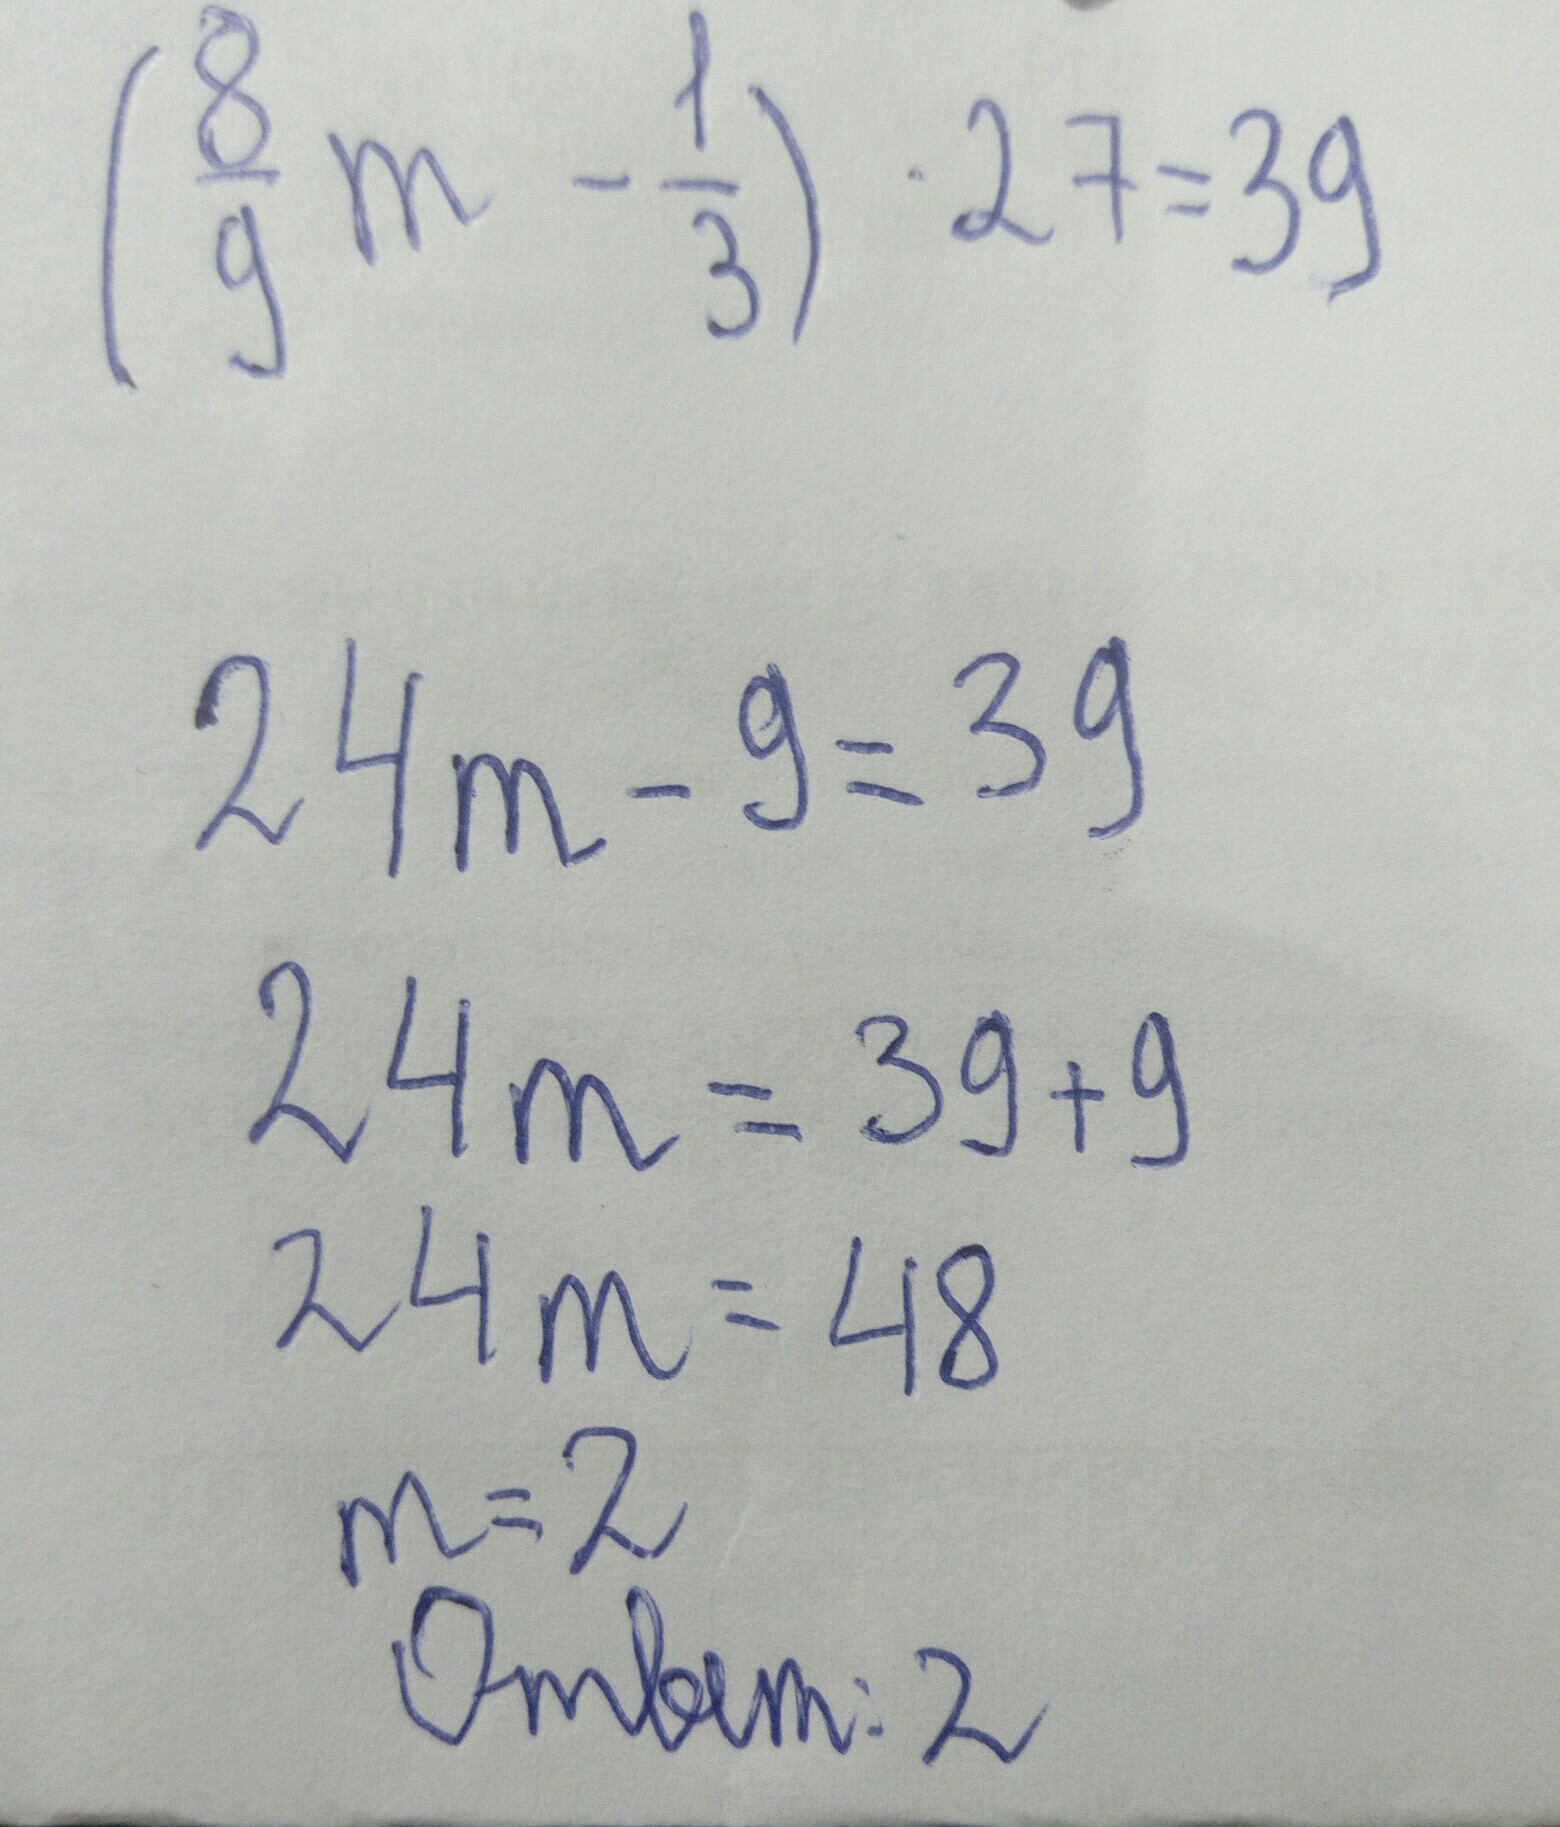 (8/9 m - 1/3) · 27 = 39
24m - 9 = 39
24m = 39 + 9
24m = 48
m = 2
Ответ: 2